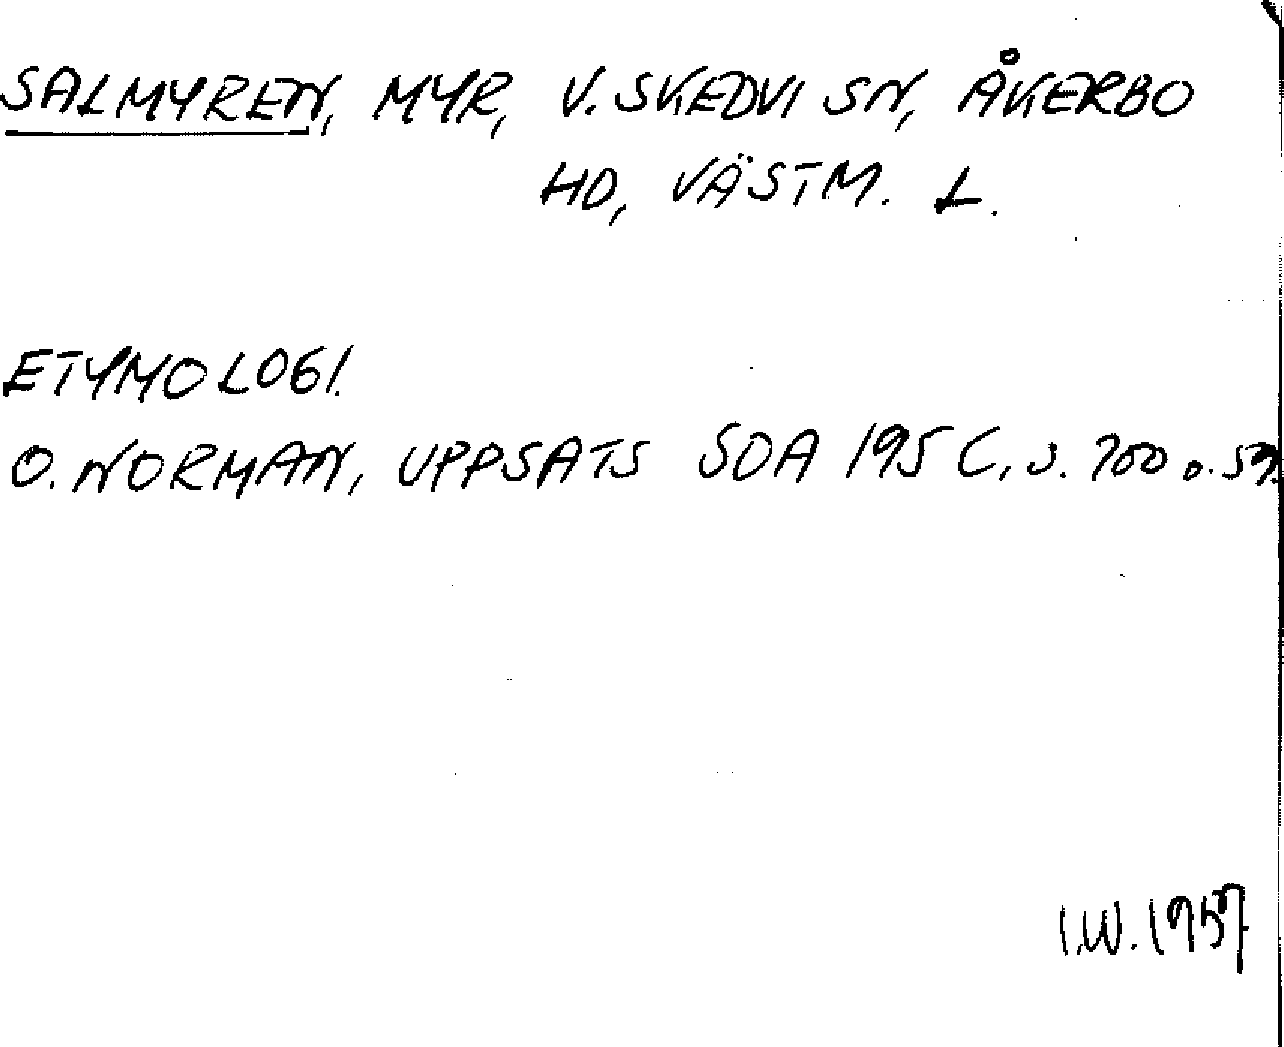 SALMYREN, MYR, V. SKEDVI SN, ÅKERBO
HD, VÄSTM. L.
ETYMOLOGI.
O. NORMAN, UPPSATS SOA 195 C, s. 200 o.
I.W. 1957